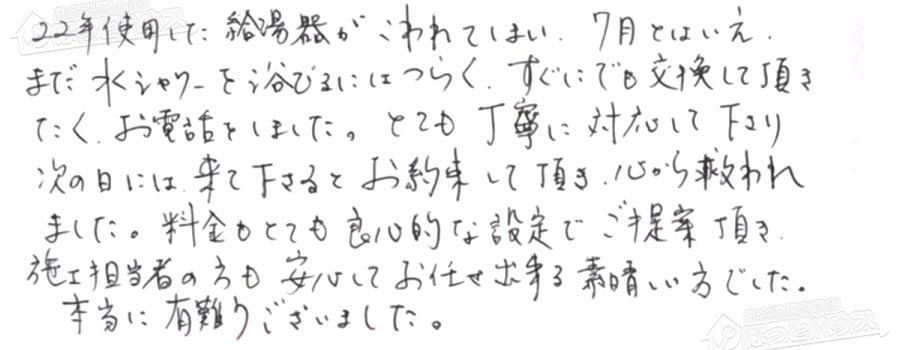 22年使用した給湯器がこわれてしまい、7月とはいえ、
まだ水シャワーを浴びるにはつらく、すぐにでも交換して頂き
たく、お電話をしました。とても丁寧に対応して下さり
次の日には、来て下さるとお約束して頂き、心から救われ
ました。料金もとても良心的な設定でご提案頂き、
施工担当者の方も安心してお任せ出来る素晴しい方でした。
本当に有難うございました。
ほっとハウス